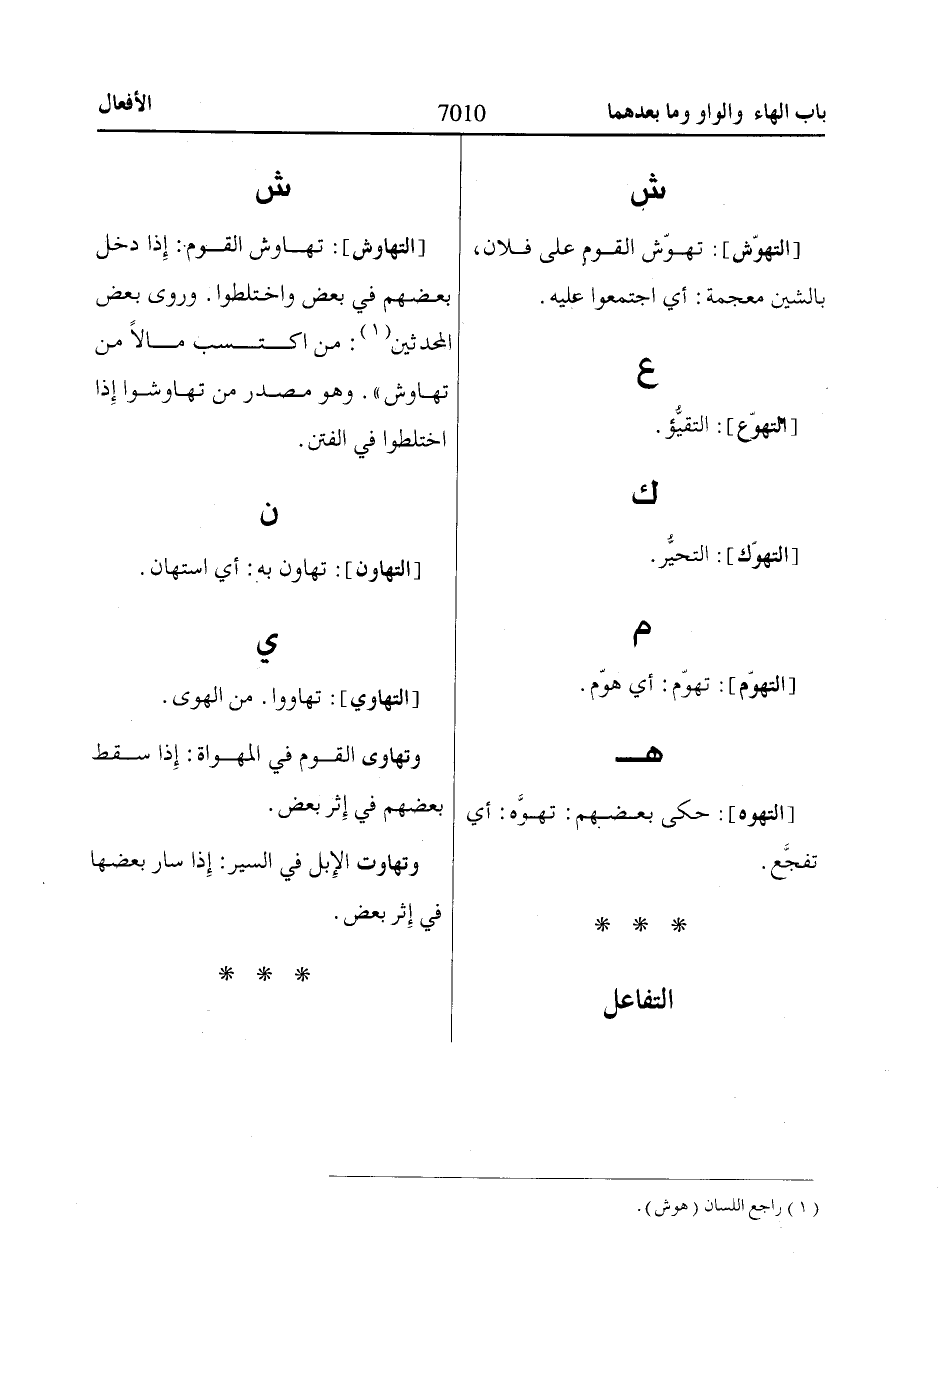 باب الهاء والواو وما بعدهما
7010
الأفعال
ش
[التهوّش]: تهـوّش القوم على فـلان،
بالشين معجمة: أي اجتمعوا عليه.
ع
[التهوّع]: التقيُّؤ.
ك
[التهوّك]: التحيُّر.
م
[التهوّم]: تهوّم: أي هوّم.
هـ
[التهوه]: حكى بعـضـهم: تهـوَّه: أي
تفجَّع.
* * *
التفاعل
ش
[التهاوش]: تهـاوش القـوم: إِذا دخل
بعـضهم في بعض واختلطوا. وروى بعض
المحدثين(١): مـن اكـتـسـب مـالاً مـن
تهـاوش». وهو مـصـدر من تهـاوشـوا إِذا
اختلطوا في الفتن.
ن
[التهاون]: تهاون به: أي استهان.
ي
[التهاوي]: تهاووا. من الهوى.
وتهاوى القـوم في المهـواة: إِذا سـقط
بعضهم في إِثر بعض.
وتهاوت الإِبل في السير: إِذا سار بعضـها
في إِثر بعض.
* * *
(١) راجع اللسان (هوش).